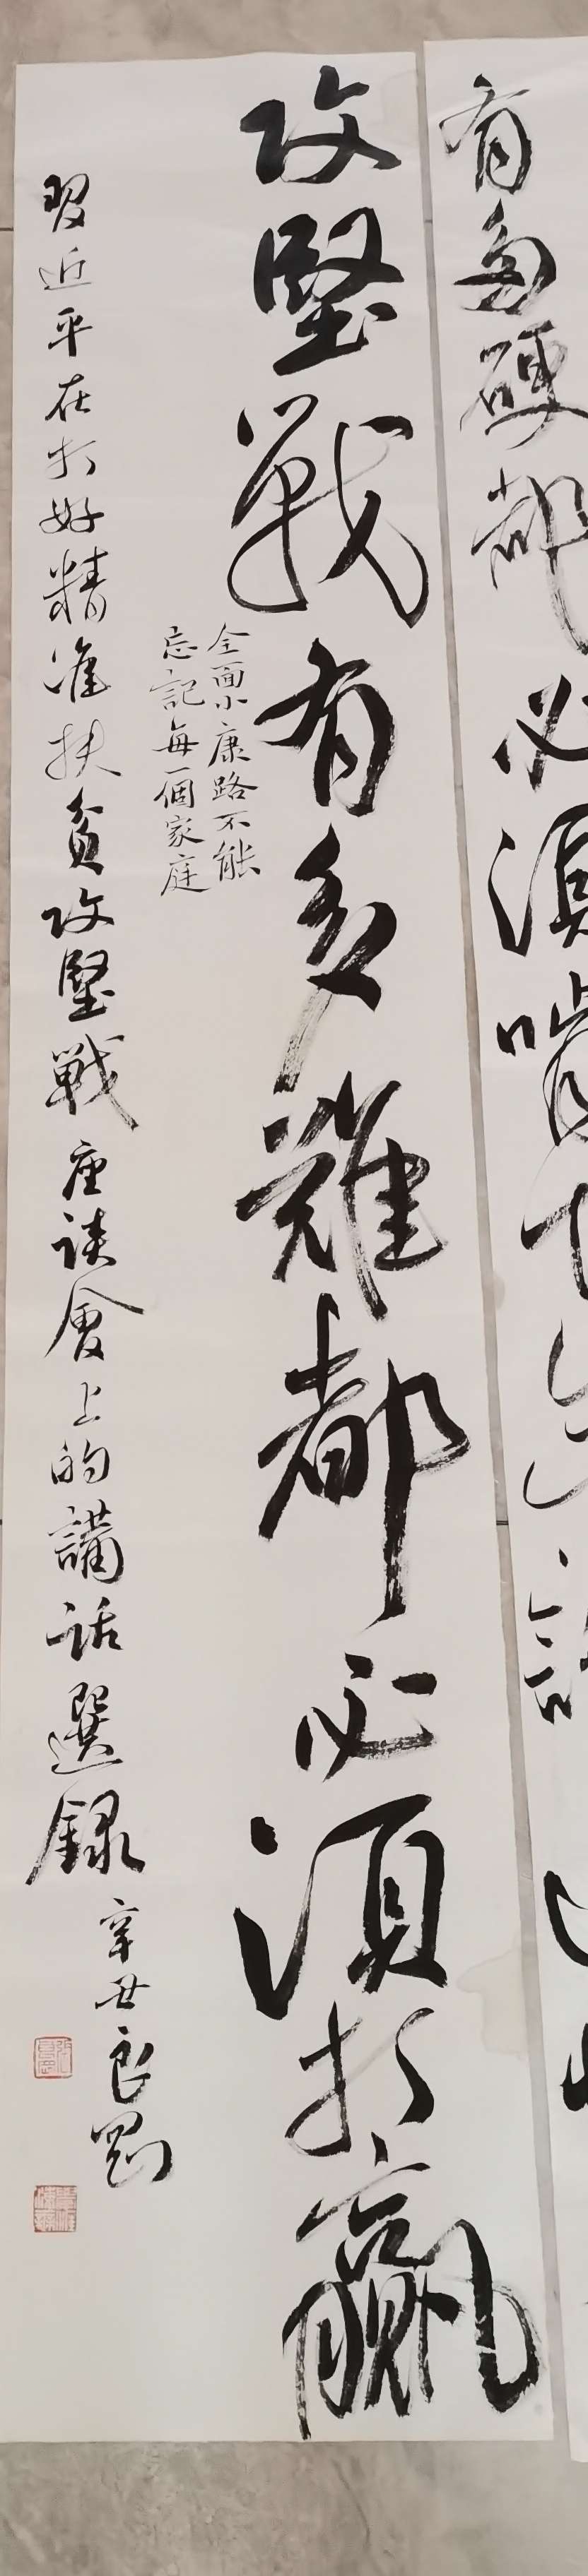 有多硬都必須啃下
攻堅戰有多難都必須打贏
全面小康路不能
忘記每一個家庭
習近平在打好精准扶貧攻堅戰座談會上的講話選錄
辛丑良罡